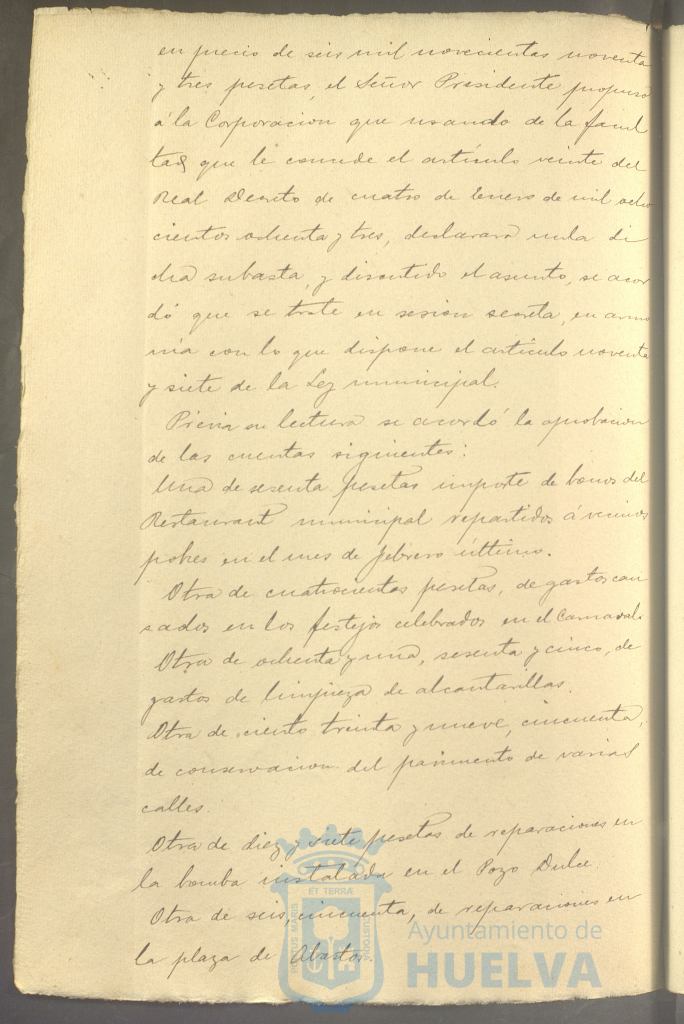 en precio de seis mil novecientas noventa
y tres pesetas, el Señor Presidente propuso
á la Corporacion que usando de la facul
tad que le concede el artículo veinte del
Real Decreto de cuatro de Enero de mil ocho
cientos ochenta y tres, declarara nula di
cha subasta, y discutido el asunto, se acor
dó que se trate en sesion secreta, en armo
nia con lo que dispone el artículo noventa
y siete de la Ley municipal.
Prévia su lectura se acordó la aprobacion
de las cuentas siguientes:
Una de sesenta pesetas importe de bonos del
Restaurant municipal repartidos á vecinos
pobres en el mes de febrero último.
Otra de cuatrocientas pesetas, de gastos cau
sados en los festejos celebrados en el Carnaval.
Otra de ochenta y una, sesenta y cinco, de
gastos de limpieza de alcantarillas.
Otra de ciento treinta y nueve, cincuenta,
de conservacion del pavimento de varias
calles.
Otra de diez y siete pesetas de reparaciones en
la bomba instalada en el Pozo Dulce.
Otra de seis, cincuenta, de reparaciones en
la plaza de Abastos.
ET TERRÆ
PORTUS MARIS
CUSTODIA
Ayuntamiento de
HUELVA